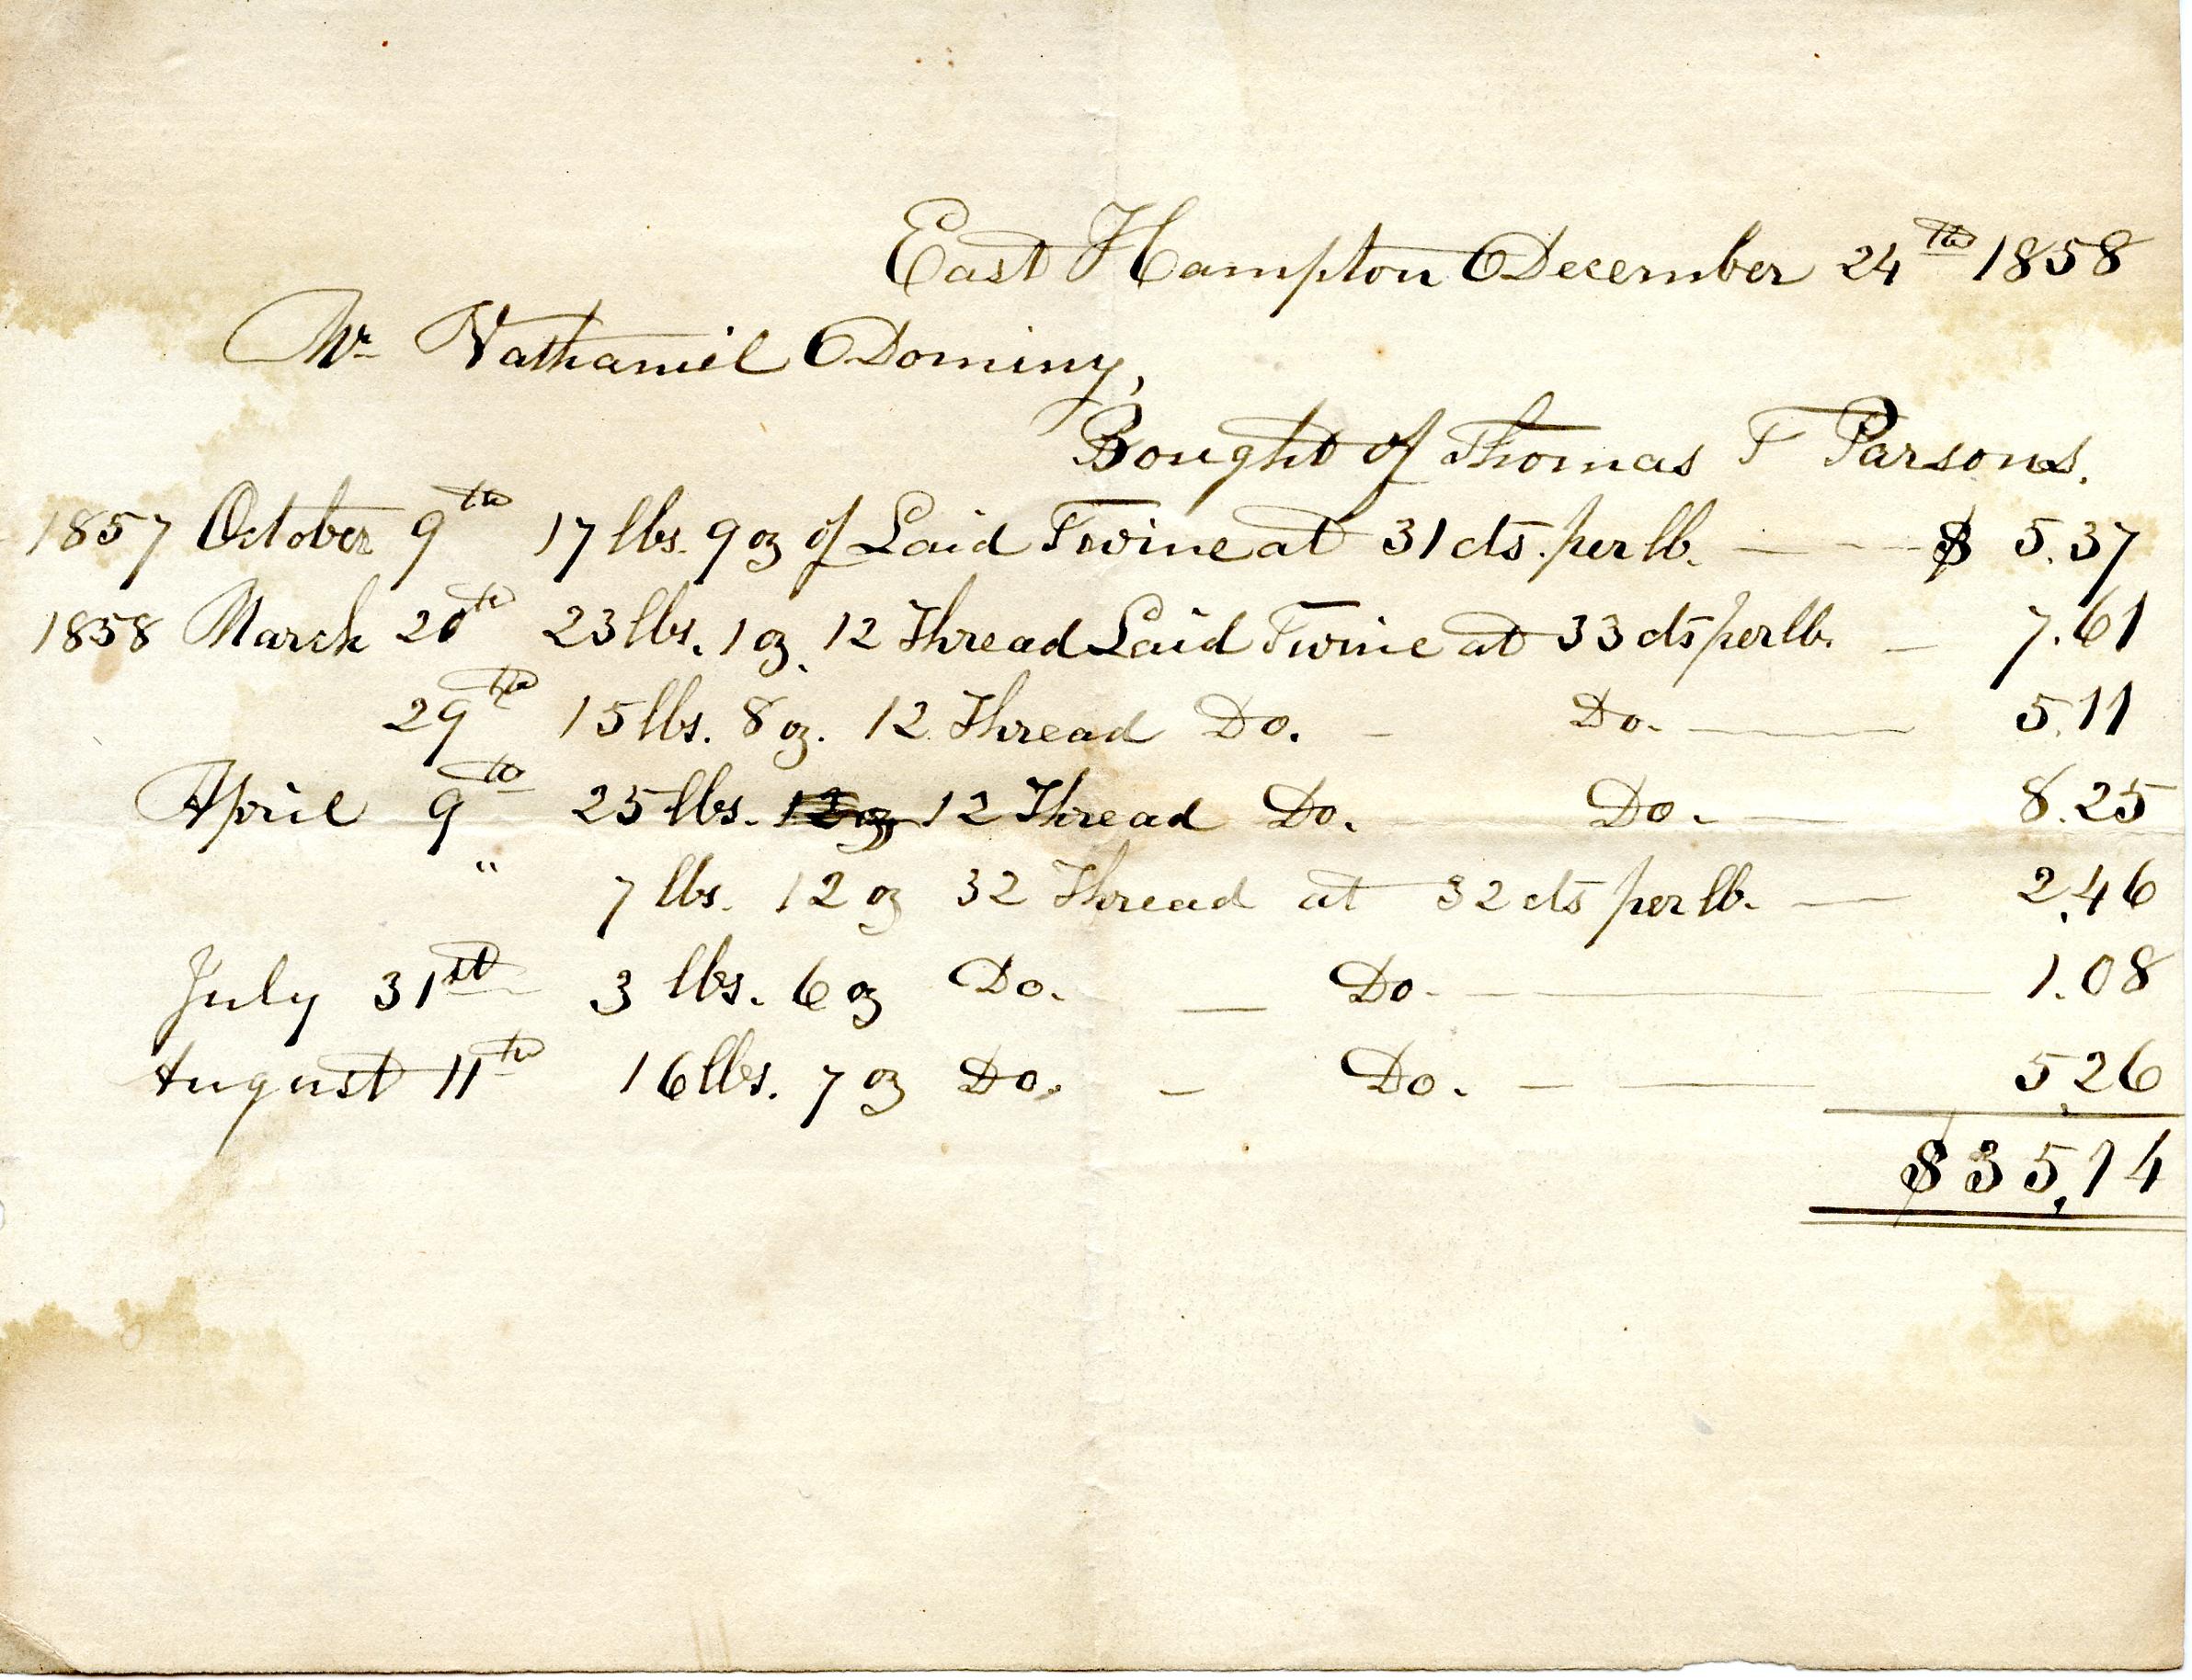 East Hampton December 24th 1858
Mr Nathaniel Dominy,
Bought of Thomas T Parsons.
1857 October 9th 17 lbs. 9 oz of Laid Twine at 31 cts. per lb. — - - $ 5.37
1858 March 20th 23 lbs. 1 oz. 12 Thread Laid Twine at 33 cts per lb. — 7.61
29th 15 lbs. 8 oz. 12 Thread Do. - Do. — 5.11
April 9th 25 lbs. 12 oz 12 Thread Do. — Do. — 8.25
" 7 lbs. 12 oz 32 Thread at 32 cts per lb. — 2.46
July 31st 3 lbs. 6 oz Do. — Do. — 1.08
August 11th 16 lbs. 7 oz Do. - Do. - — 5.26
$35,14